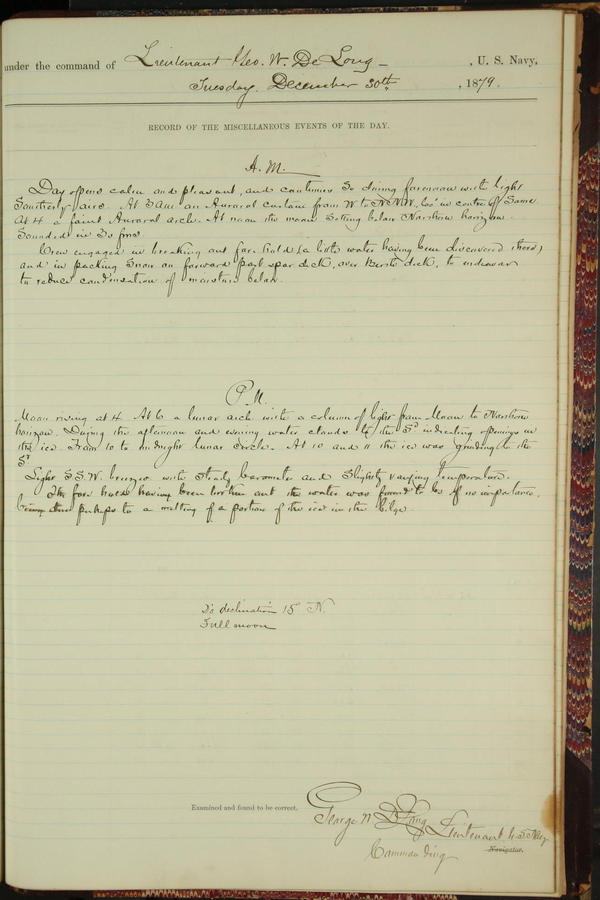 under the command of Lieutenant Geo. W. De Long — , U. S. Navy,
Tuesday, December 30th, , 1879.
RECORD OF THE MISCELLANEOUS EVENTS OF THE DAY.
A. M.
Day opens calm and pleasant, and continues so during forenoon with light
Southerly airs. At 3 am an Auroral curtain from W to NNW, 60° in centre of same.
At 4 a faint Auroral arch. At noon the moon setting below Northern horizon.
Sounded in 30 fms.
Crew engaged in breaking out fore hold (a little water having been discovered there)
and in packing snow on forward part spar deck, over berth deck, to endeavor
to reduce condensation of moisture below.
P. M.
Moon rising at 4. At 6 a lunar arch with a column of light from Moon to Northern
horizon. During the afternoon and evening water clouds to the Sd indicating openings in
the ice. From 10 to midnight lunar circle. At 10 and 11 the ice was grinding to the
Sd.
Light SSW. breezes with steady barometer and slightly varying temperature.
The fore hold having been broken out the water was found to be of no importance,
being due perhaps to a melting of a portion of the ice in the bilge.
declination 15° N.
Full moon
Examined and found to be correct.
George W. De Long Lieutenant U.S. Navy
Commanding Navigator.